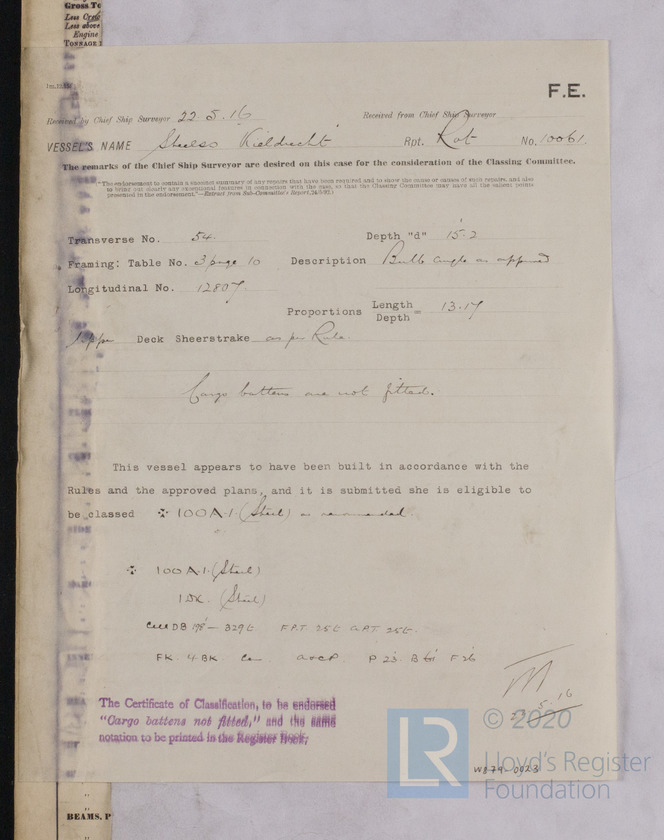 Gross To
Less Crew
Less above
Engine
Tonnage
F.E.
Received by Chief Ship Surveyor 22.5.16 Received from Chief Ship Surveyor
VESSEL'S NAME Kieldrecht Rpt. Rot No. 10061.
The remarks of the Chief Ship Surveyor are desired on this case for the consideration of the Classing Committee.
"The endorsement to contain a succinct summary of any repairs that have been required and to show the cause or causes of such repairs, and also
to bring out clearly any exceptional features in connection with the case, so that the Classing Committee may have all the salient points
presented in the endorsement."—Extract from Sub-Committee's Report,
Transverse No. 54. Depth "d" 15.2
Framing: Table No. 3 page 10 Description Bulb angle as approved
Longitudinal No. 12807
Proportions Length
Depth = 13.17
Upper Deck Sheerstrake as per Rule.
Cargo battens are not fitted.
This vessel appears to have been built in accordance with the
Rules and the approved plans, and it is submitted she is eligible to
be classed ✠ 100A.1. (Steel) as recommended.
✠ 100A.1. (Steel)
1DK. (Steel)
Cell DB 198'— 329t FPT 25t APT 25t.
FK. 4BK. Cem. P 23' B 61' F 26'
The Certificate of Classification, to be endorsed
"Cargo battens not fitted," and the same
notation to be printed in the Register Book.
W874-0023
LR © 2020
Lloyd's Register
Foundation
BEAMS, P